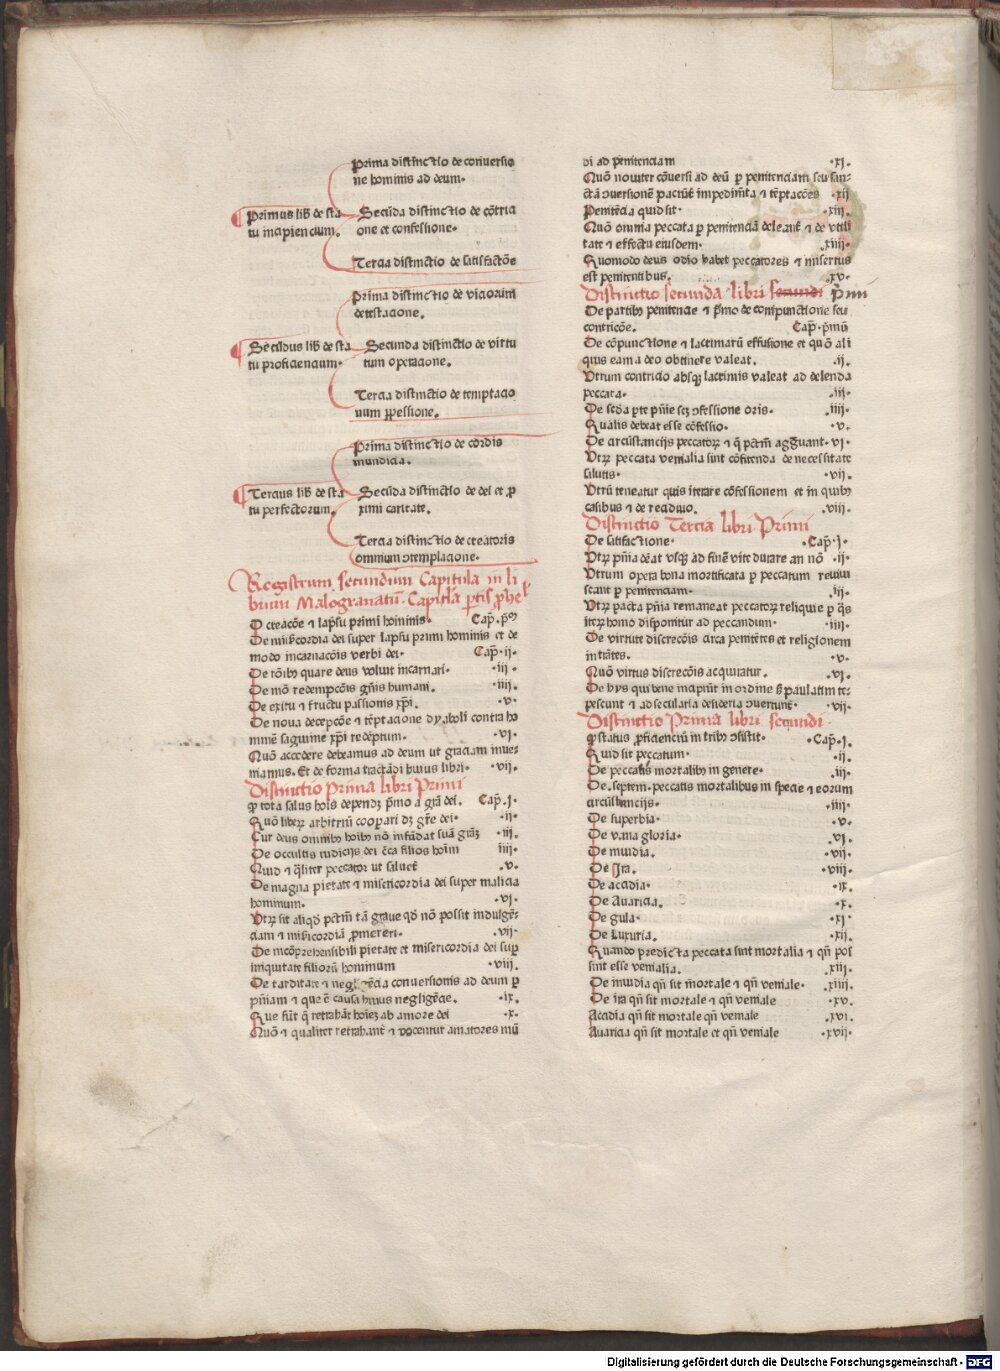 Prima distinctio de conuersio
ne hominis ad deum.
Primus lib̃ de sta
tu incipiencium.
Secũda distinctio de cõtrici
one et confessione.
Tercia distinctio de satisfactõe
Prima distinctio de viciorum
detestacione.
Secũdus lib̃ de sta
tu proficiencium.
Secunda distinctio de virtu
tum optacione.
Tercia distinctio de temptacio
num ꝓpessione.
Prima distinctio de cordis
mundicia.
Tercius lib̃ de sta
tu perfectorum.
Secũda distinctio de dei et ꝓ
ximi caritate.
Tercia distinctio de creatoris
omnium ꝯtemplacione.
Registrum secundum Capitula in li
brum Malogranatũ. Capitl̃a ꝑtis ꝓhe
De creacõe ⁊ lapsu primi hominis. Cap̃. p̃m
De mĩsericordia dei super lapsu primi hominis et de
modo incarnacõis verbi dei. Cap̃. ij.
De rõib⁹ quare deus voluit incarnari. .iij.
De mõ redempcõis gñis humani. .iiij.
De exitu ⁊ fructu passionis xp̃i. .v.
De noua decepcõe ⁊ tẽptacione dyaboli contra ho
minẽ sanguine xp̃i redẽptum. .vi.
Quõ accedere debeamus ad deum ut graciam inue-
niamus. Et de forma tractãdi huius libri. .vij.
Distinctio prima libri Primi
ꝙ tota salus hõis dependꝫ p̃mo a grã dei. Cap̃. j.
Quõ liberꝝ arbitriũ cooꝑari dꝫ gr̃e dei. .ij.
Cur deus omnib⁹ hoĩb⁹ nõ infũdat suã grãꝫ .iij.
De occultis iudicijs dei c̃ca filios hoĩm iiij.
Quid ⁊ q̃liter peccator ut saluet̃ .v.
De magna pietate ⁊ misericordia dei super malicia
hominum. .vi.
Vtrꝝ sit aliqd̃ pctm̃ tã graue qd̃ nõ possit indulgẽ-
ciam ⁊ mĩsericordiã ꝓmereri. .vij.
De incõprehensibili pietate et misericordia dei suꝑ
iniquitate filiorũ hominum .viij.
De tarditate ⁊ negligẽcia conuersionis ad deum ꝑ
pñiam ⁊ que ẽ causa huius negligẽcie. .ix.
Que sũt q̃ retrahãt hoĩeꝫ ab amore dei .x.
Quõ ⁊ qualiter retrahant̃ ⁊ vocentur amatores mũ
di ad penitenciam .xi.
Quõ nouiter cõuersi ad deũ ꝑ penitenciam seu san-
ctã ꝯuersionẽ paciũt̃ impedimẽta ⁊ tẽptacões .xij
Penitẽcia quid sit. .xiij.
Quõ omnia peccata ꝑ penitenciã deleant̃ ⁊ de vtili
tate ⁊ effectu eiusdem. .xiiij.
Quomodo deus odio habet peccatores ⁊ misertus
est penitentibus. .xv.
Distinctio secunda libri secundi p̃rimi
De partib⁹ penitencie ⁊ p̃mo de compunctione seu
contricõe. Cap̃. p̃mũ
De cõpunctione ⁊ lacrimarũ effusione et quõ ali
quis eam a deo obtinere valeat. .ij.
Vtrum contricio absqꝫ lacrimis valeat ad delenda
peccata. .iij.
De secũda ꝑte pñie scꝫ ꝯfessione oris. .iiij.
Qualis debeat esse cõfessio. .v.
De circũstancijs peccatorꝝ ⁊ q̃ pctm̃ aggrauant. .vi.
Vtrꝝ peccata venialia sint cõfitenda de necessitate
salutis. .vij.
Vtrũ teneatur quis iterare cõfessionem et in quib⁹
casibus ⁊ de recidiuo. .viij.
Distinctio Tercia libri Primi
De satisfactione. .Cap̃. j.
Vtrꝝ pñia debeat vsqꝫ ad finẽ vite durare an nõ .ij.
Vtrum opera bona mortificata ꝑ peccatum reuiui
scant ꝑ penitenciam. .iij.
Vtrꝝ pacta pñia remaneat peccatorꝝ reliquie ꝑ q̃s
iterꝝ homo disponitur ad peccandum. .iiij.
De virtute discrecõis circa penitẽtes et religionem
intrãtes. .v.
Quõ virtus discrecõis acquiratur. .vi.
De hijs qui bene incipiũt in ordine sꝫ paulatim te-
pescunt ⁊ ad secularia desideria ꝯuertunt̃. .vij.
Distinctio Prima libri secundi.
ꝙ status ꝓficienciũ in trib⁹ ꝯsistit. .Cap̃. j.
Quid sit peccatum. .ij.
De peccatis mortalib⁹ in genere. .iij.
De septem peccatis mortalibus in specie ⁊ eorum
circũstancijs. .iiij.
De superbia. .v.
De vana gloria. .vi.
De inuidia. .vij.
De Ira. .viij.
De accidia. .ix.
De Auaricia. .x.
De gula. .xi.
De Luxuria. .xij.
Quando predicta peccata sint mortalia ⁊ qñ pos
sint esse venialia. .xiij.
De inuidia qñ sit mortale ⁊ qñ veniale. .xiiij.
De ira qñ sit mortale ⁊ qñ veniale .xv.
Accidia qñ sit mortale qñ veniale .xvi.
Auaricia qñ sit mortale et qñ veniale .xvij.
Digitalisierung gefördert durch die Deutsche Forschungsgemeinschaft - DFG